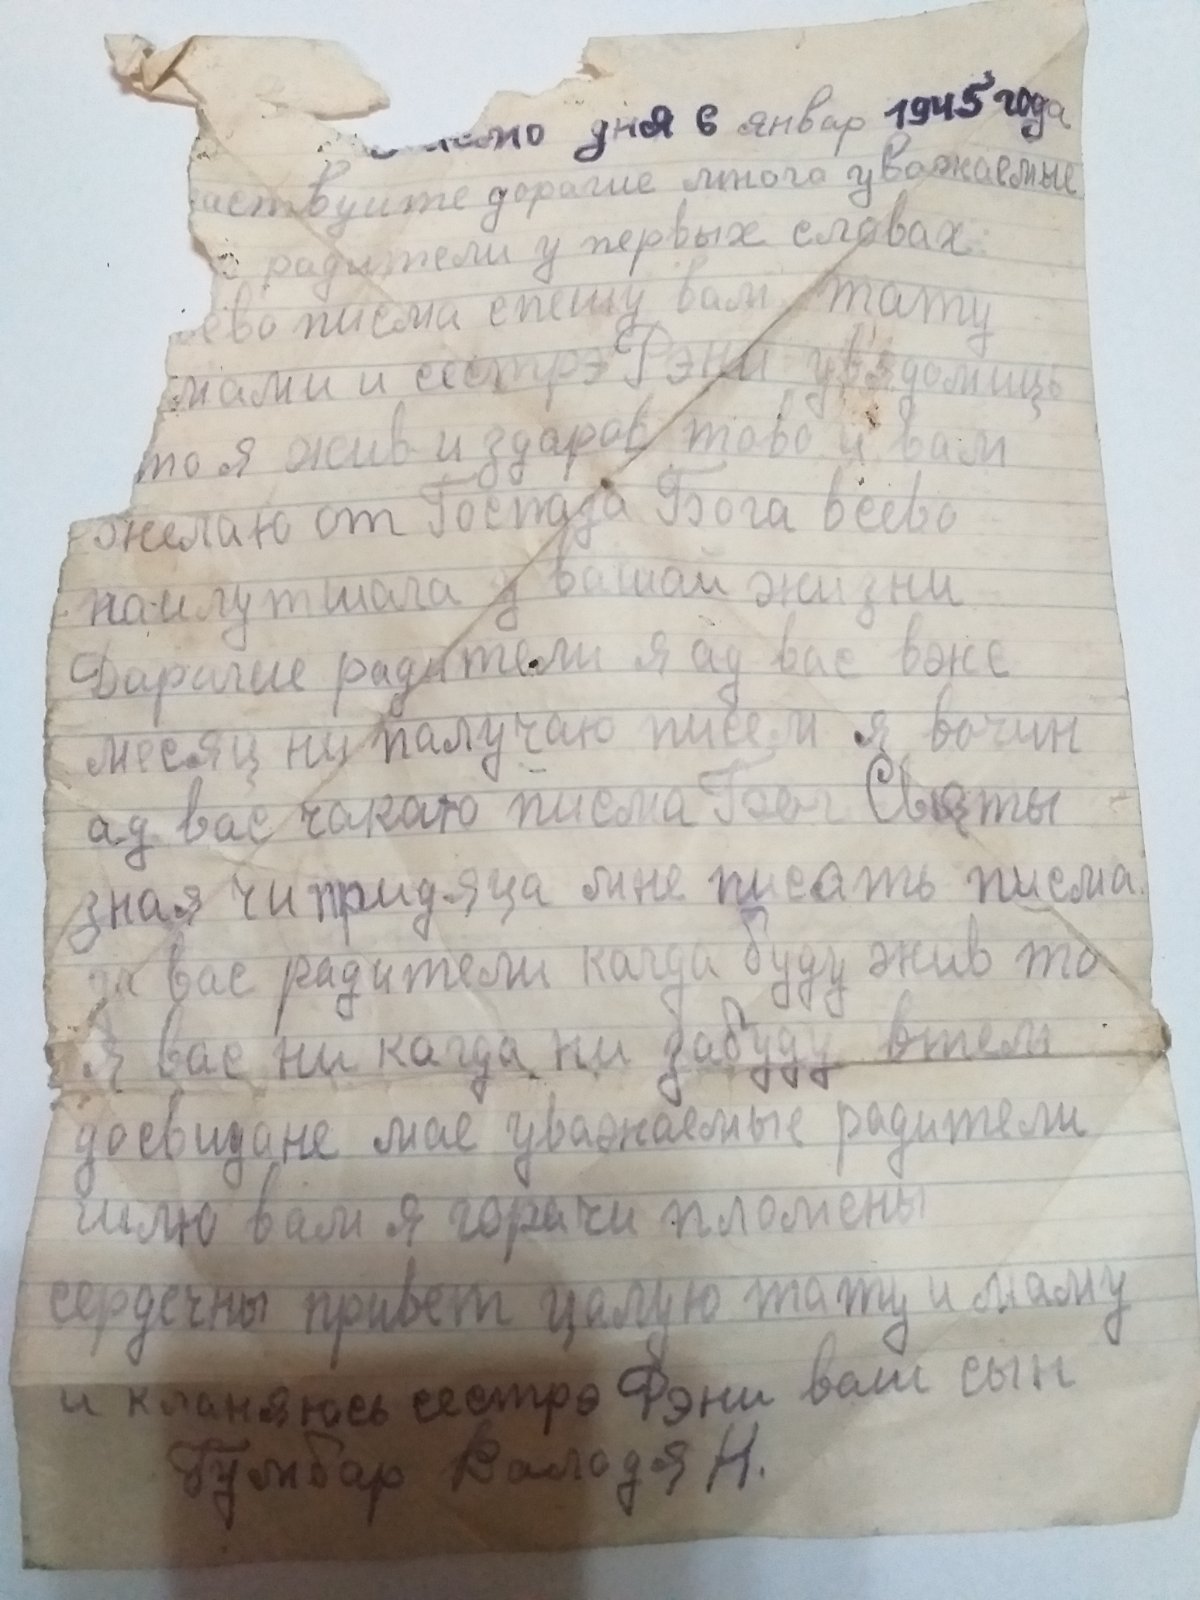 дня 6 январ 1945 года
аствуйте дорагие многа уважаемые
радители у первых словах
ево писма спешу вам тату
мами и сестрэ Фэни увядомиць
то я жив и здаров тово и вам
желаю от Госпада Бога всево
наилутшага у вашай жизни
Дарагие радители я ад вас вже
месяц ни палучаю писем я вочин
ад вас чакаю писма Бог Святы
зная чи придяца мне писать писма
вас радители кагда буду жив то
я вас ни кагда ни забуду втем
досвидане мае уважаемые радители
шлю вам я горачи пломены
сердечны привет цалую тату и маму
и кланяюсь сестрэ Фэни ваш сын
Гумбар Валодя Н.